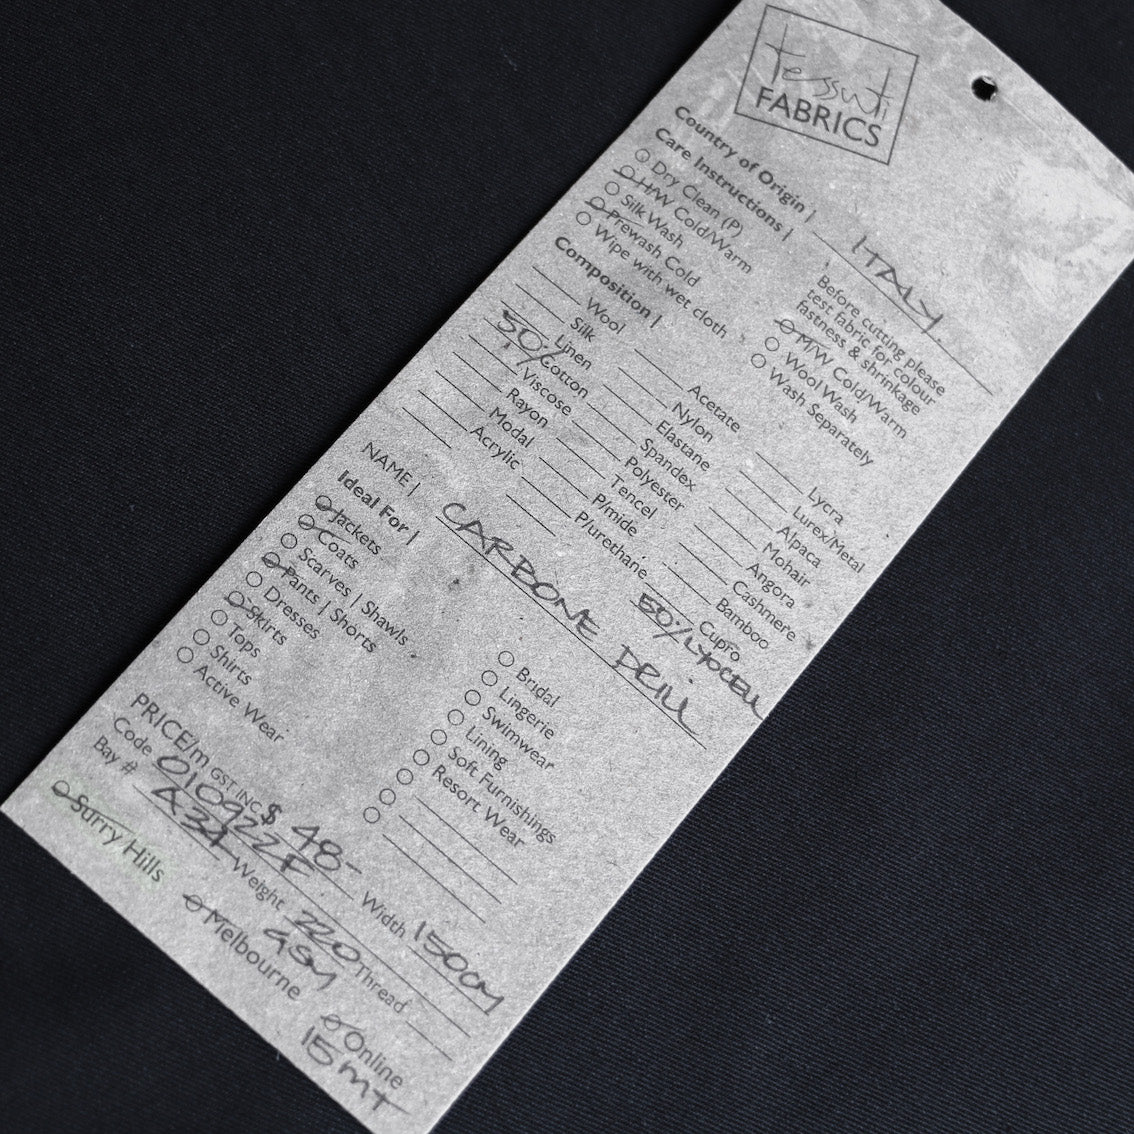 tessuti
FABRICS
Country of Origin | ITALY
Care Instructions |
Before cutting please
test fabric for colour
fastness & shrinkage
Dry Clean (P)
H/W Cold/Warm
Silk Wash
Prewash Cold
Wipe with wet cloth
M/W Cold/Warm
Wool Wash
Wash Separately
Composition |
Wool
Silk
Linen
50% Cotton
Viscose
Rayon
Modal
Acrylic
Acetate
Nylon
Elastane
Spandex
Polyester
Tencel
P/mide
P/urethane
Lycra
Lurex/Metal
Alpaca
Mohair
Angora
Cashmere
Bamboo
Cupro
50% LYOCELL
NAME | CARBONE DRILL
Ideal For |
Jackets
Coats
Scarves | Shawls
Pants | Shorts
Dresses
Skirts
Tops
Shirts
Active Wear
Bridal
Lingerie
Swimwear
Lining
Soft Furnishings
Resort Wear
PRICE/m GST INC $ 48- Width 150cm
Code 010922F Weight 220 GSM
Bay # A34 Thread
Surry Hills Melbourne Online
15 MT